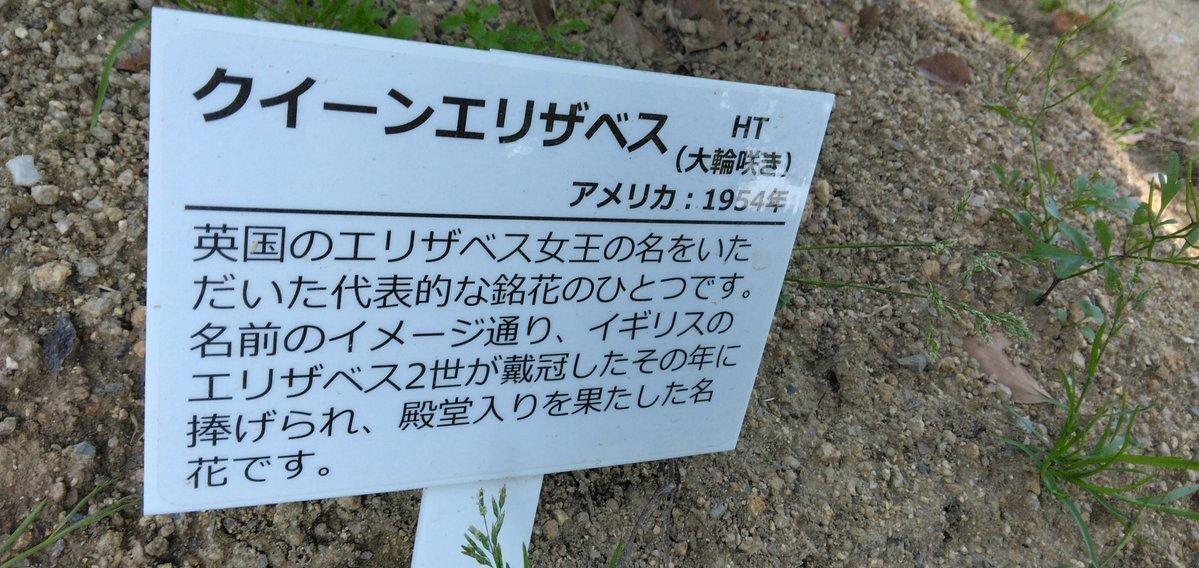 クイーンエリザベス HT
(大輪咲き)
アメリカ：1954年
英国のエリザベス女王の名をいた
だいた代表的な銘花のひとつです。
名前のイメージ通り、イギリスの
エリザベス2世が戴冠したその年に
捧げられ、殿堂入りを果たした名
花です。